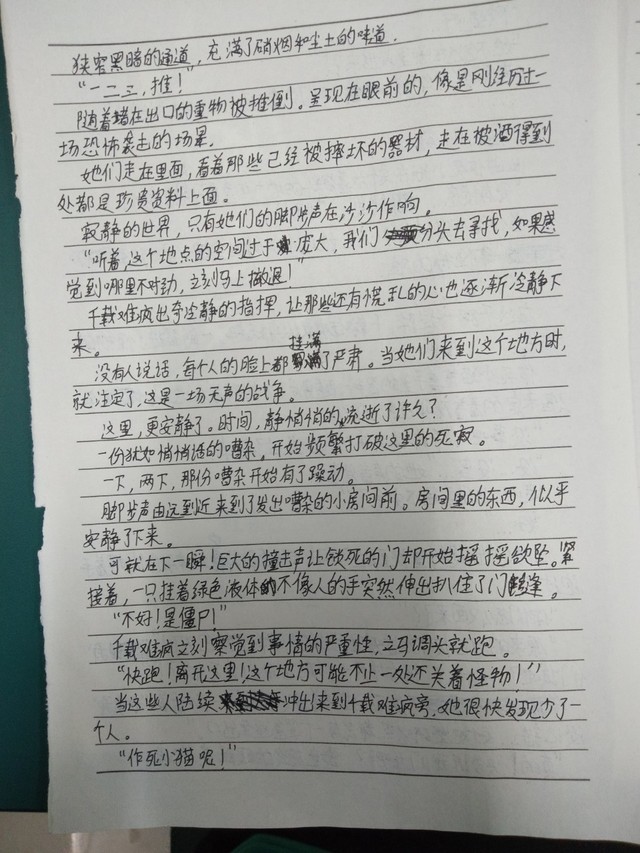 狭窄黑暗的通道，充满了硝烟和尘土的味道．
“一二三，推！”
随着堵在出口的重物被推倒。呈现在眼前的，像是刚经历过一
场恐怖袭击的场景．
她们走在里面，看着那些已经被摔坏的器材，走在被洒得到
处都是珍贵资料上面。
寂静的世界，只有她们的脚步声在沙沙作响。
“听着，这个地点的空间过于庞大，我们分头去寻找，如果感
觉到哪里不对劲，立刻马上撤退！”
千载难疯出奇冷静的指挥，让那些还有慌乱的心也逐渐冷静下
来。
没有人说话，每个人的脸上都挂满了严肃。当她们来到这个地方时，
就注定了，这是一场无声的战争。
这里，更安静了。时间，静悄悄的流逝了许久？
一份犹如悄悄话的嘈杂，开始频繁打破这里的死寂。
一下，两下，那份嘈杂开始有了躁动。
脚步声由远到近来到了发出嘈杂的小房间前。房间里的东西，似乎
安静了下来。
可就在下一瞬！巨大的撞击声让锁死的门却开始摇摇欲坠。紧
接着，一只挂着绿色液体的不像人的手突然伸出扒住了门缝。
“不好！是僵尸！”
千载难疯立刻察觉到事情的严重性，立马调头就跑。
“快跑！离开这里！这个地方可能不止一处还关着怪物！”
当这些人陆续冲出来到千载难疯旁，她很快发现少了一
个人。
“作死小猫呢！”